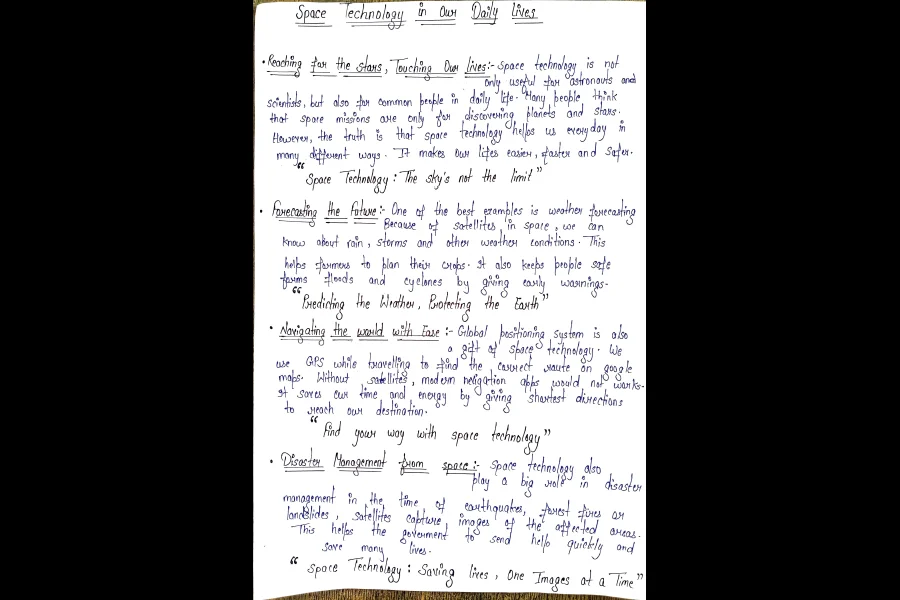 Space Technology in Our Daily Lives
• Reaching for the stars, Touching Our lives:- Space technology is not
only useful for astronauts and
scientists, but also for common people in daily life. Many people think
that space missions are only for discovering planets and stars.
However, the truth is that space technology helps us everyday in
many different ways. It makes our lifes easier, faster and safer.
"Space Technology : The sky's not the limit"
• Forecasting the Future:- One of the best examples is weather forecasting
Because of satellites in space, we can
know about rain, storms and other weather conditions. This
helps farmers to plan their crops. It also keeps people safe
forms floods and cyclones by giving early warnings.
"Predicting the Weather, Protecting the Earth"
• Navigating the world with Ease :- Global positioning system is also
a gift of space technology. We
use GPS while travelling to find the correct route on google
maps. Without satellites, modern netigation apps would not works.
It saves our time and energy by giving shortest directions
to reach our destination.
"Find your way with space technology"
• Disaster Management from space:- Space technology also
play a big role in disaster
management in the time of earthquakes, forest fires or
landslides, satellites capture images of the affected areas.
This helps the goverment to send help quickly and
save many lives.
"Space Technology : Saving lives, One Images at a Time"